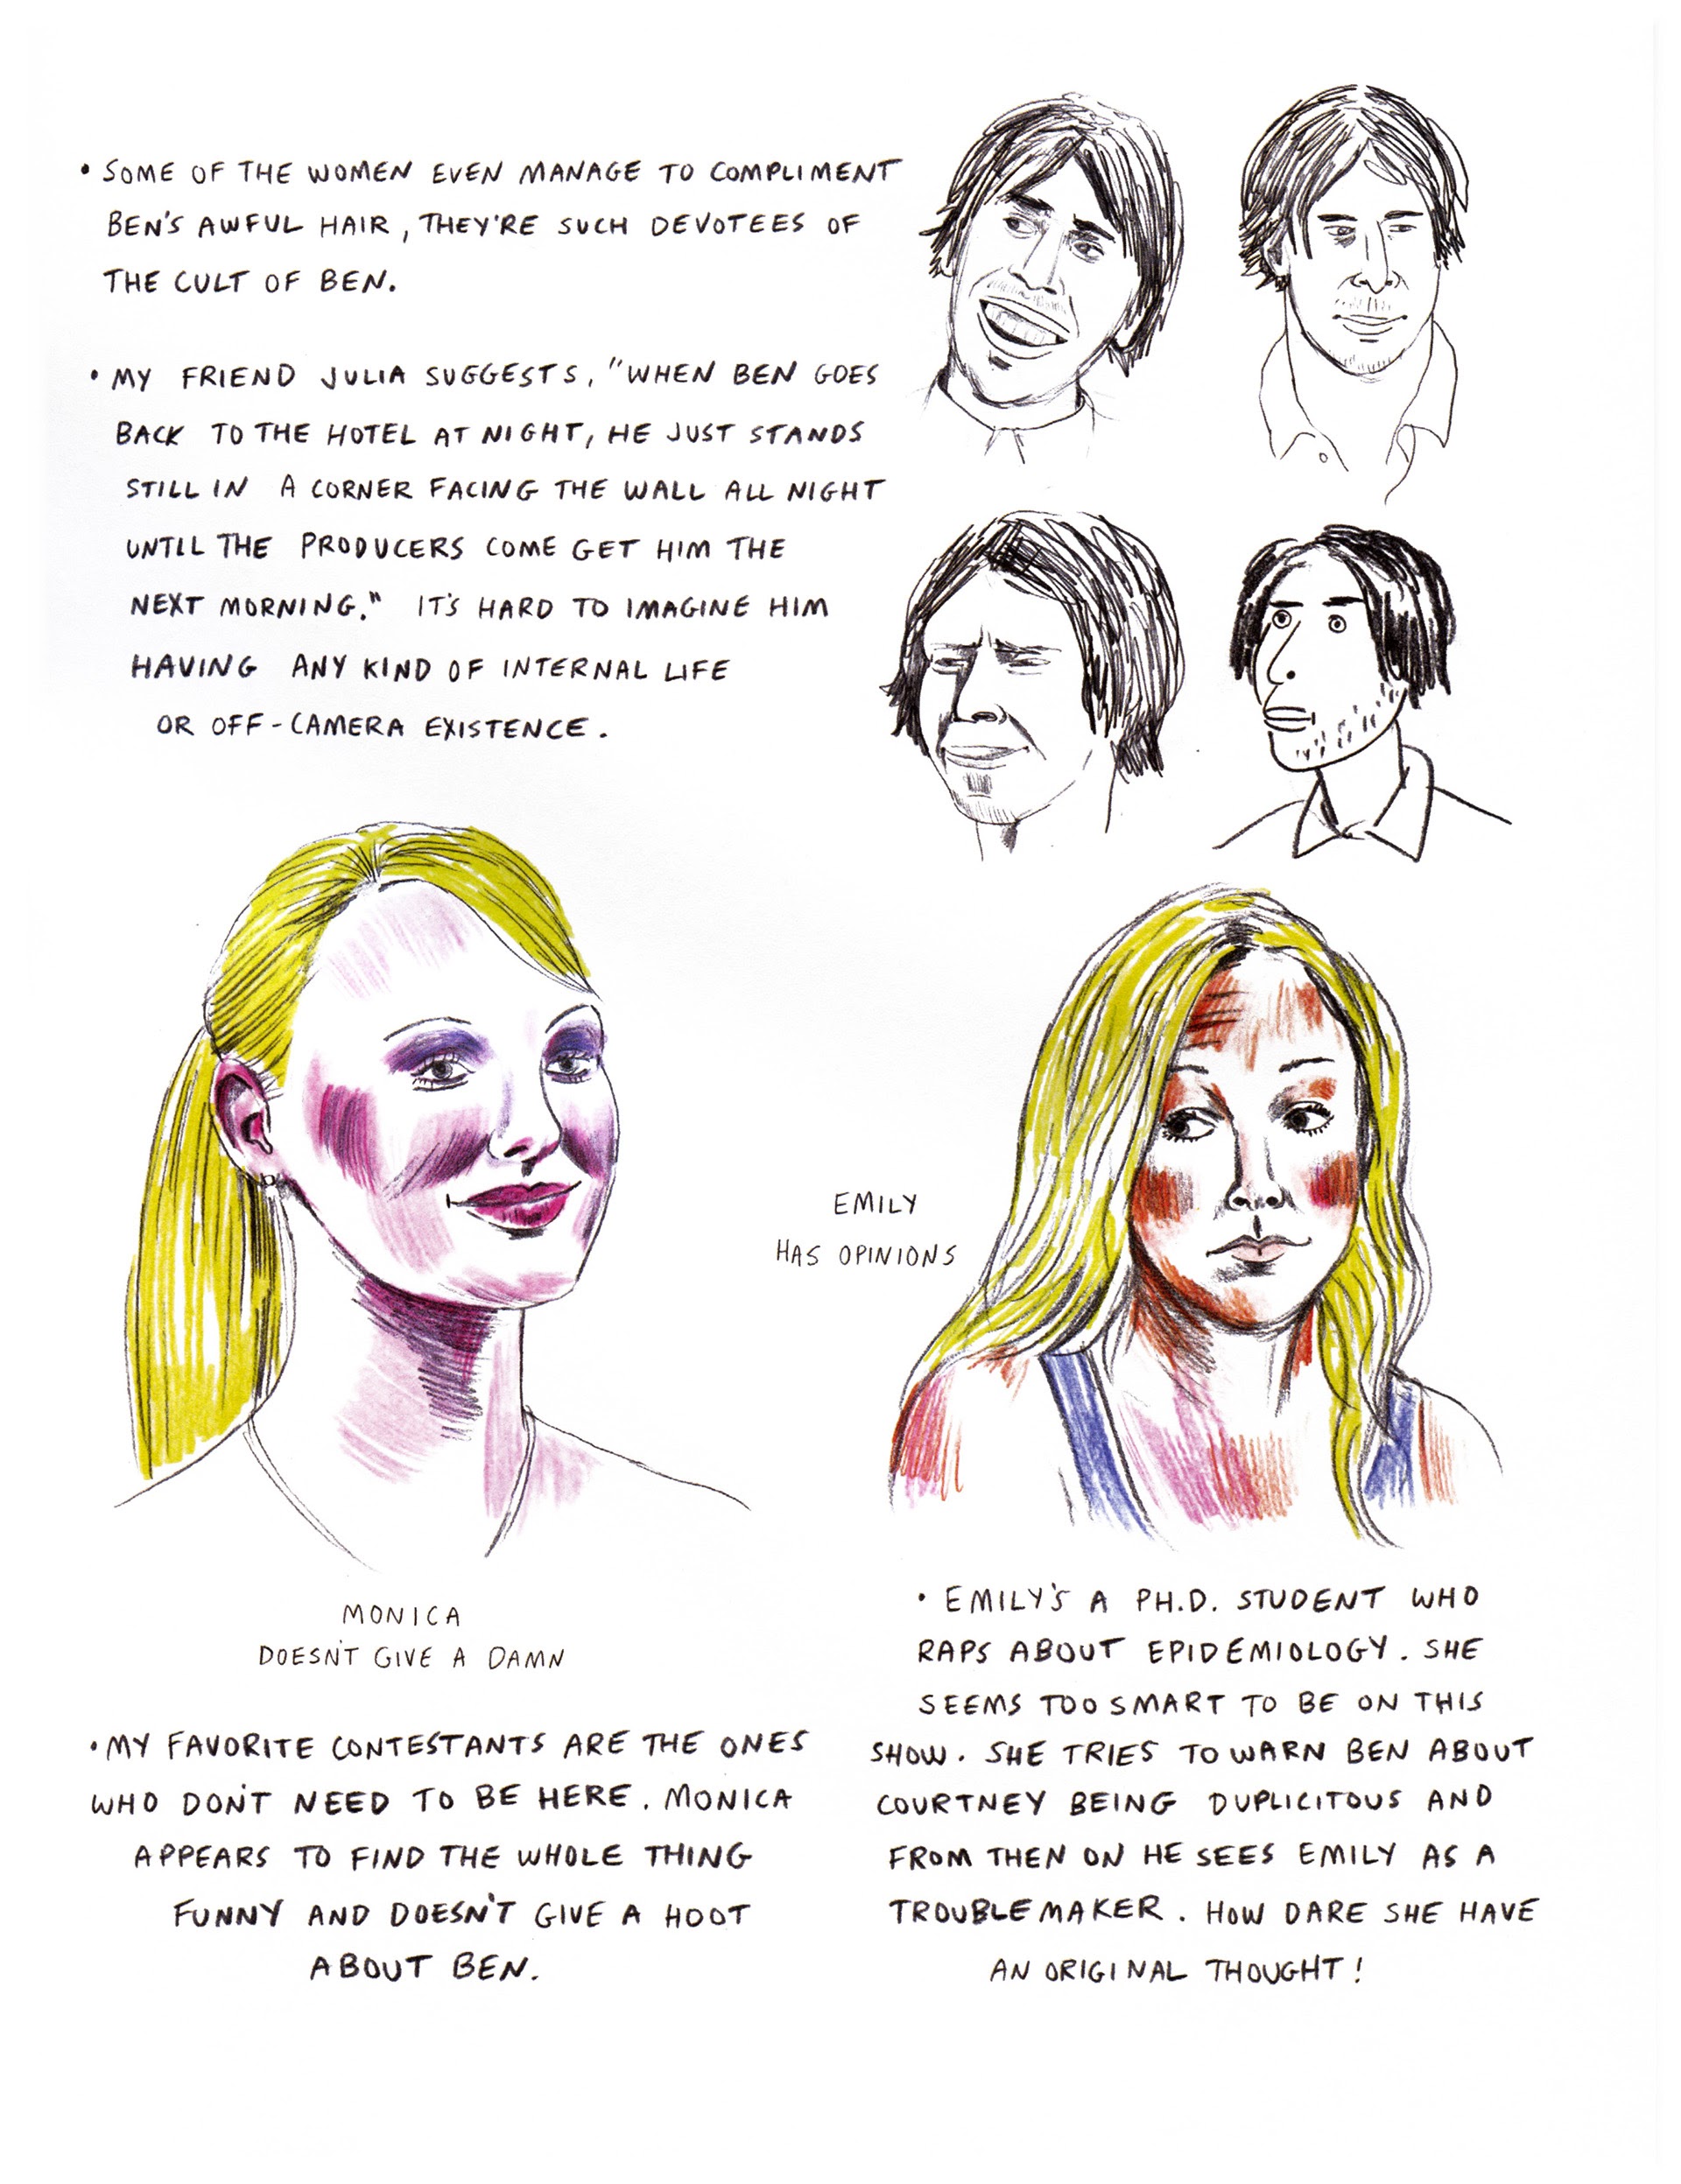 • SOME OF THE WOMEN EVEN MANAGE TO COMPLIMENT
BEN'S AWFUL HAIR, THEY'RE SUCH DEVOTEES OF
THE CULT OF BEN.
• MY FRIEND JULIA SUGGESTS, "WHEN BEN GOES
BACK TO THE HOTEL AT NIGHT, HE JUST STANDS
STILL IN A CORNER FACING THE WALL ALL NIGHT
UNTIL THE PRODUCERS COME GET HIM THE
NEXT MORNING." IT'S HARD TO IMAGINE HIM
HAVING ANY KIND OF INTERNAL LIFE
OR OFF-CAMERA EXISTENCE.
EMILY
HAS OPINIONS
MONICA
DOESN'T GIVE A DAMN
• MY FAVORITE CONTESTANTS ARE THE ONES
WHO DON'T NEED TO BE HERE. MONICA
APPEARS TO FIND THE WHOLE THING
FUNNY AND DOESN'T GIVE A HOOT
ABOUT BEN.
• EMILY'S A PH.D. STUDENT WHO
RAPS ABOUT EPIDEMIOLOGY. SHE
SEEMS TOO SMART TO BE ON THIS
SHOW. SHE TRIES TO WARN BEN ABOUT
COURTNEY BEING DUPLICITOUS AND
FROM THEN ON HE SEES EMILY AS A
TROUBLEMAKER. HOW DARE SHE HAVE
AN ORIGINAL THOUGHT!